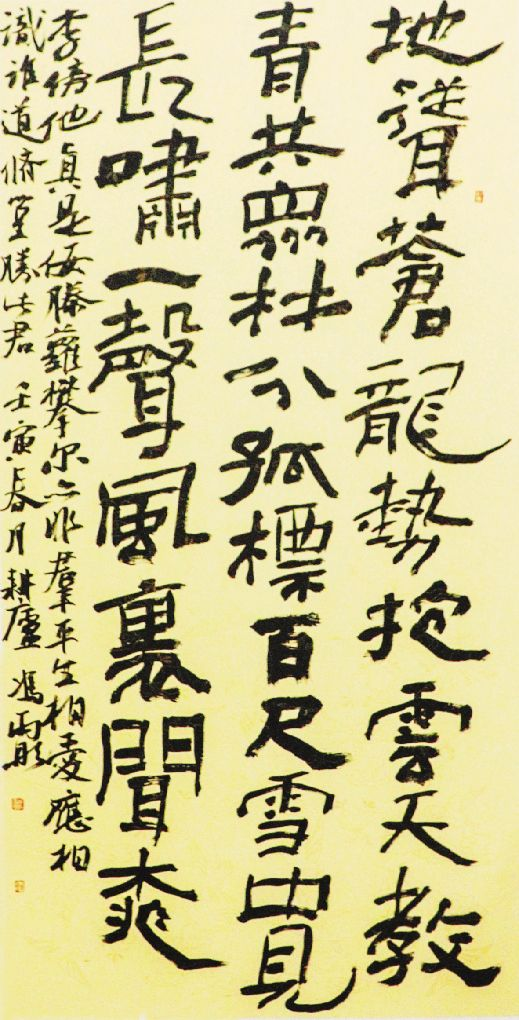 地聳蒼龍勢抱雲天教
青共眾林分孤標百尺雪中見
長嘯一聲風裏聞桃
李傍他真是佞藤蘿攀尔亦非羣平生相愛應相
識誰道脩篁勝此君 壬寅春月耕廬 馮